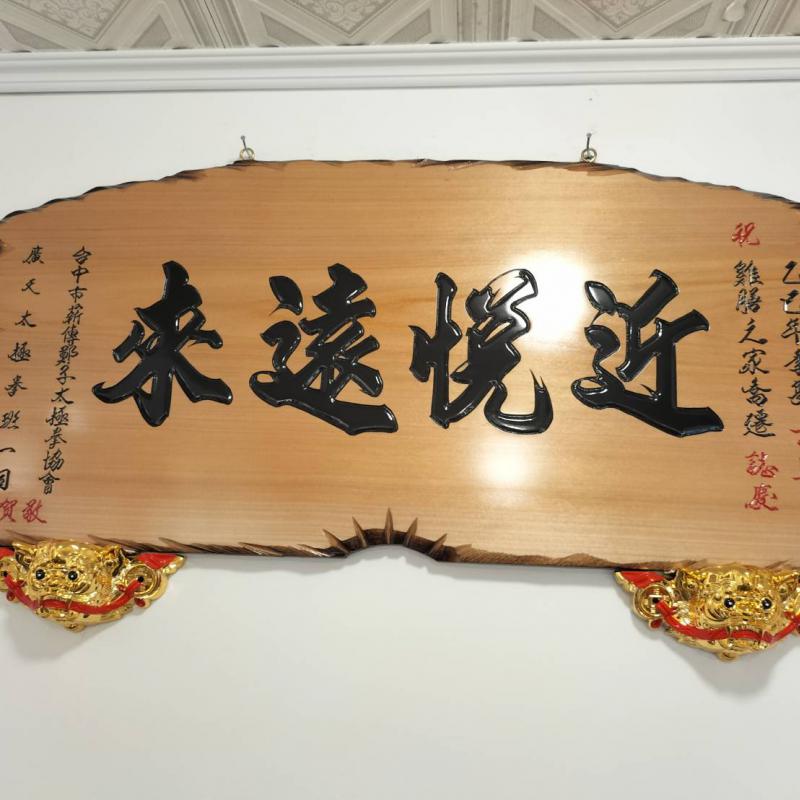 乙巳年
祝
雞膳之家喬遷誌慶
近悅遠來
台中市薪傳鄭子太極拳協會
廣天太極拳班一同
敬賀